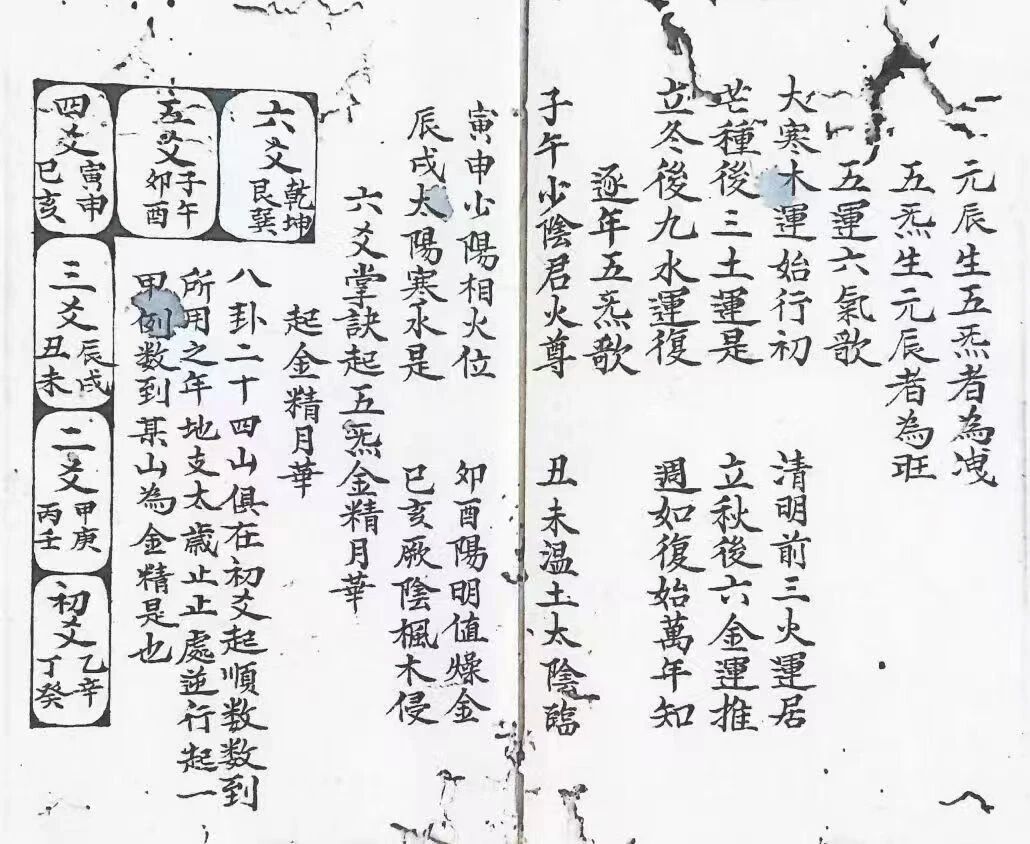 元辰生五炁者為洩
五炁生元辰者為旺
五運六氣歌
大寒木運始行初 清明前三火運居
芒種後三土運是 立秋後六金運推
立冬後九水運復 週如復始萬年知
逐年五炁歌
子午少陰君火尊 丑未温土太陰臨
寅申少陽相火位 卯酉陽明值燥金
辰戌太陽寒水是 巳亥厥陰楓木侵
六爻掌訣起五炁金精月華
起金精月華
八卦二十四山俱在初爻起順数数到
所用之年地支太歲止止處逆行起一
甲例数到某山為金精是也
六爻 乾坤艮巽
五爻 子午卯酉
四爻 寅申巳亥
三爻 辰戌丑未
二爻 甲庚丙壬
初爻 乙辛丁癸